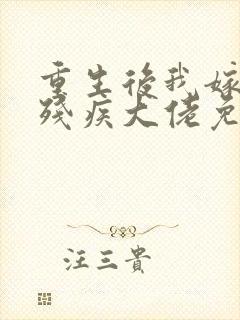 重生後我嫁
殘疾大佬免
汪三貴